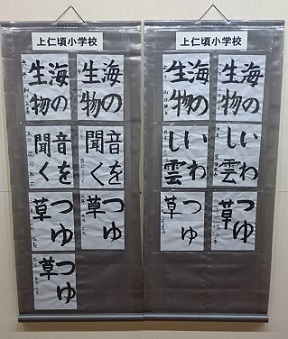 上仁頃小学校
海の
生物
いわ
し雲
つゆ
草
海の
生物
いわ
し雲
つゆ
草
上仁頃小学校
海の
生物
音を
聞く
つゆ
草
海の
生物
音を
聞く
つゆ
草
つゆ
草